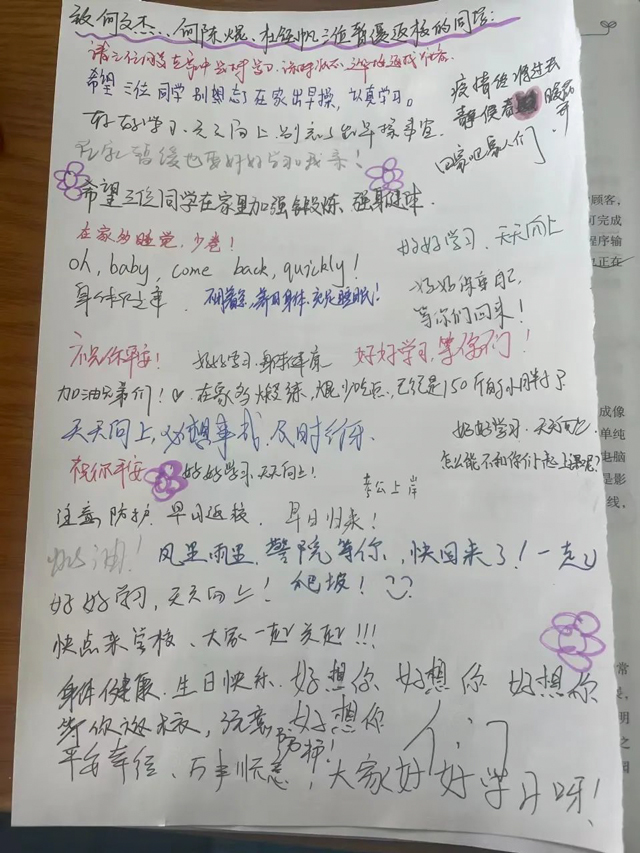 致何文杰、何陈焜、杜钰帆三位暂缓返校的同学:
请三位同学在家中
希望三位同学别忘了在家出早操,认真学习。
疫情终将过去
静候春暖花开
回家吧家人们
好好学习、天天向上,别忘了出早操事宜
在家暂缓也要好好学习
希望三位同学在家里加强锻炼,强身健体.
在家多睡觉,少卷!
好好学习、天天向上
oh, baby, come back, quickly!
好好保重自己,
等你们回来!
祝你平安!
好好学习,身体健康
好好学习,等你们!
加油兄弟们!♡
在家多锻炼,焜少吃点,已经是150斤的小胖子了
天天向上,
及时行
好好学习、天天向上
祝你平安
好好学习、天天向上!
怎么能不和你们一起上课呢?
李公上岸
注意防护 早日返校、
早日归来!
加油!
风里雨里,警院等你,快回来了!一起
爬坡!
好好学习,天天向上!
快点来学校、大家一起 !!!
身体健康、生日快乐、好想你 好想你 好想你
好想你
们
防护!
平安幸福、万事顺意,大家好好学习呀!
顾客,
可完成
程序输
正在
成像
单纯
电脑
是影
线,
常
明
之